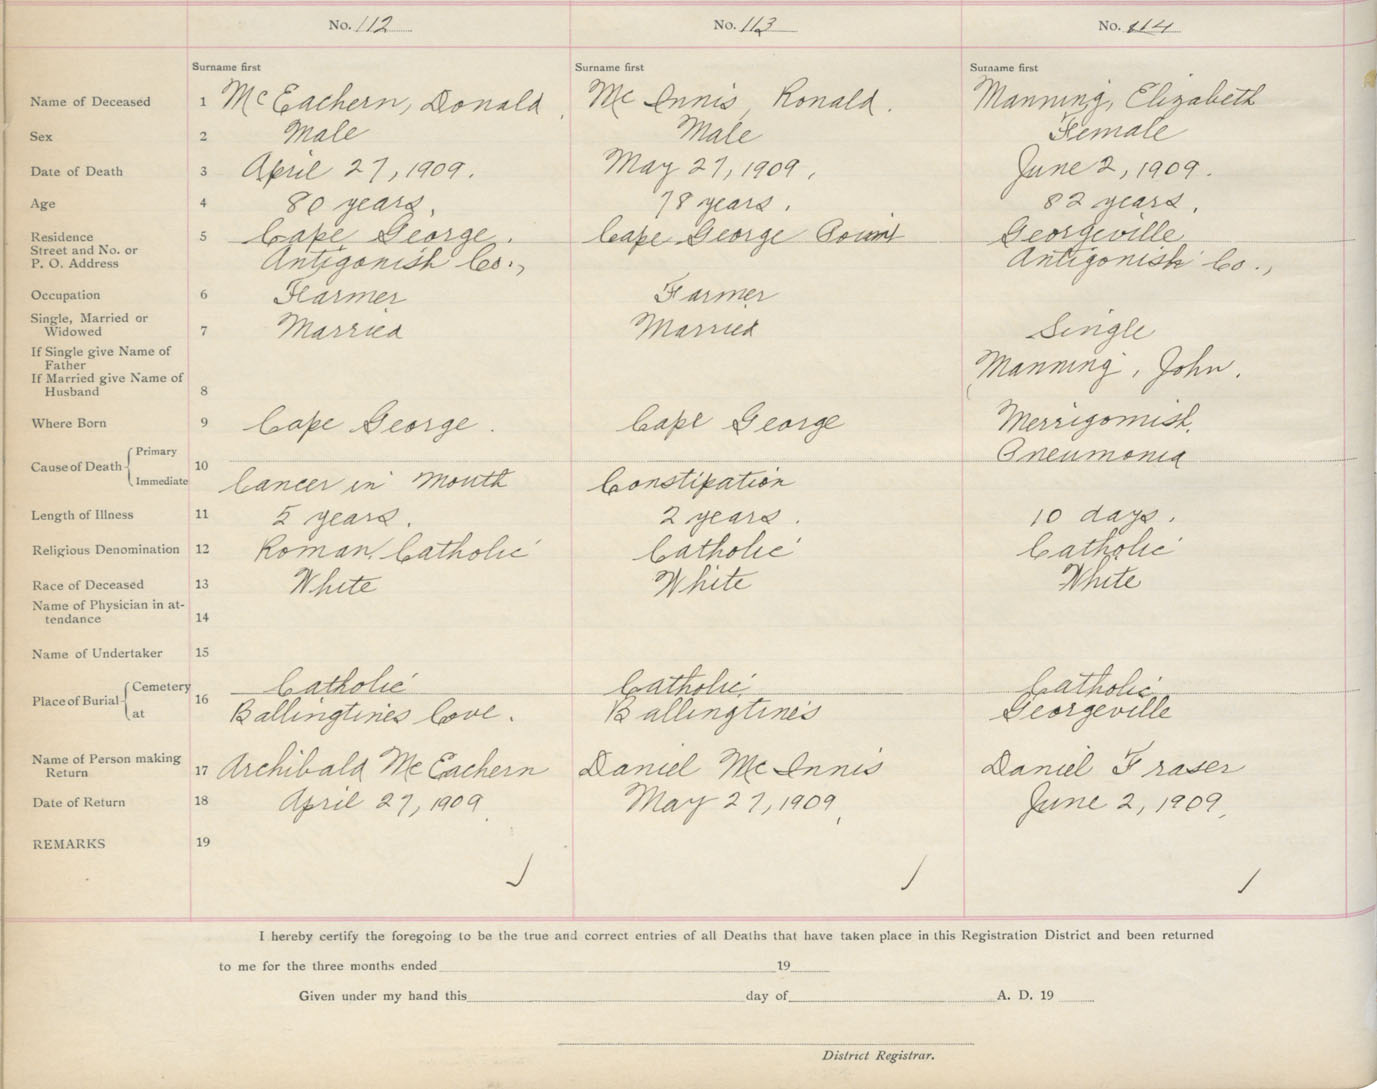 No. 112 No. 113 No. 114
Surname first Surname first Surname first
Name of Deceased 1 McEachern, Donald, Mc Innis, Ronald. Manning, Elizabeth
Sex 2 Male Male Female
Date of Death 3 April 27, 1909. May 27, 1909, June 2, 1909.
Age 4 80 years, 78 years, 82 years,
Residence 5 Cape George. Cape George Point Georgeville
Street and No. or
P. O. Address Antigonish Co., Antigonish Co.,
Occupation 6 Farmer Farmer
Single, Married or
Widowed 7 Married Married Single
If Single give Name of
Father
If Married give Name of Manning, John.
Husband 8
Where Born 9 Cape George. Cape George Merrigomish.
Cause of Death Primary 10 Pneumonia
Immediate Cancer in Mouth Constipation
Length of Illness 11 5 years. 2 years. 10 days.
Religious Denomination 12 Roman Catholic Catholic Catholic
Race of Deceased 13 White White White
Name of Physician in at-
tendance 14
Name of Undertaker 15
Place of Burial Cemetery 16 Catholic Catholic Catholic
at Ballingtines Cove. Ballingtines Georgeville
Name of Person making
Return 17 Archibald McEachern Daniel Mc Innis Daniel Fraser
Date of Return 18 April 27, 1909. May 27, 1909, June 2, 1909,
REMARKS 19
I hereby certify the foregoing to be the true and correct entries of all Deaths that have taken place in this Registration District and been returned
to me for the three months ended 19
Given under my hand this day of A. D. 19
District Registrar.